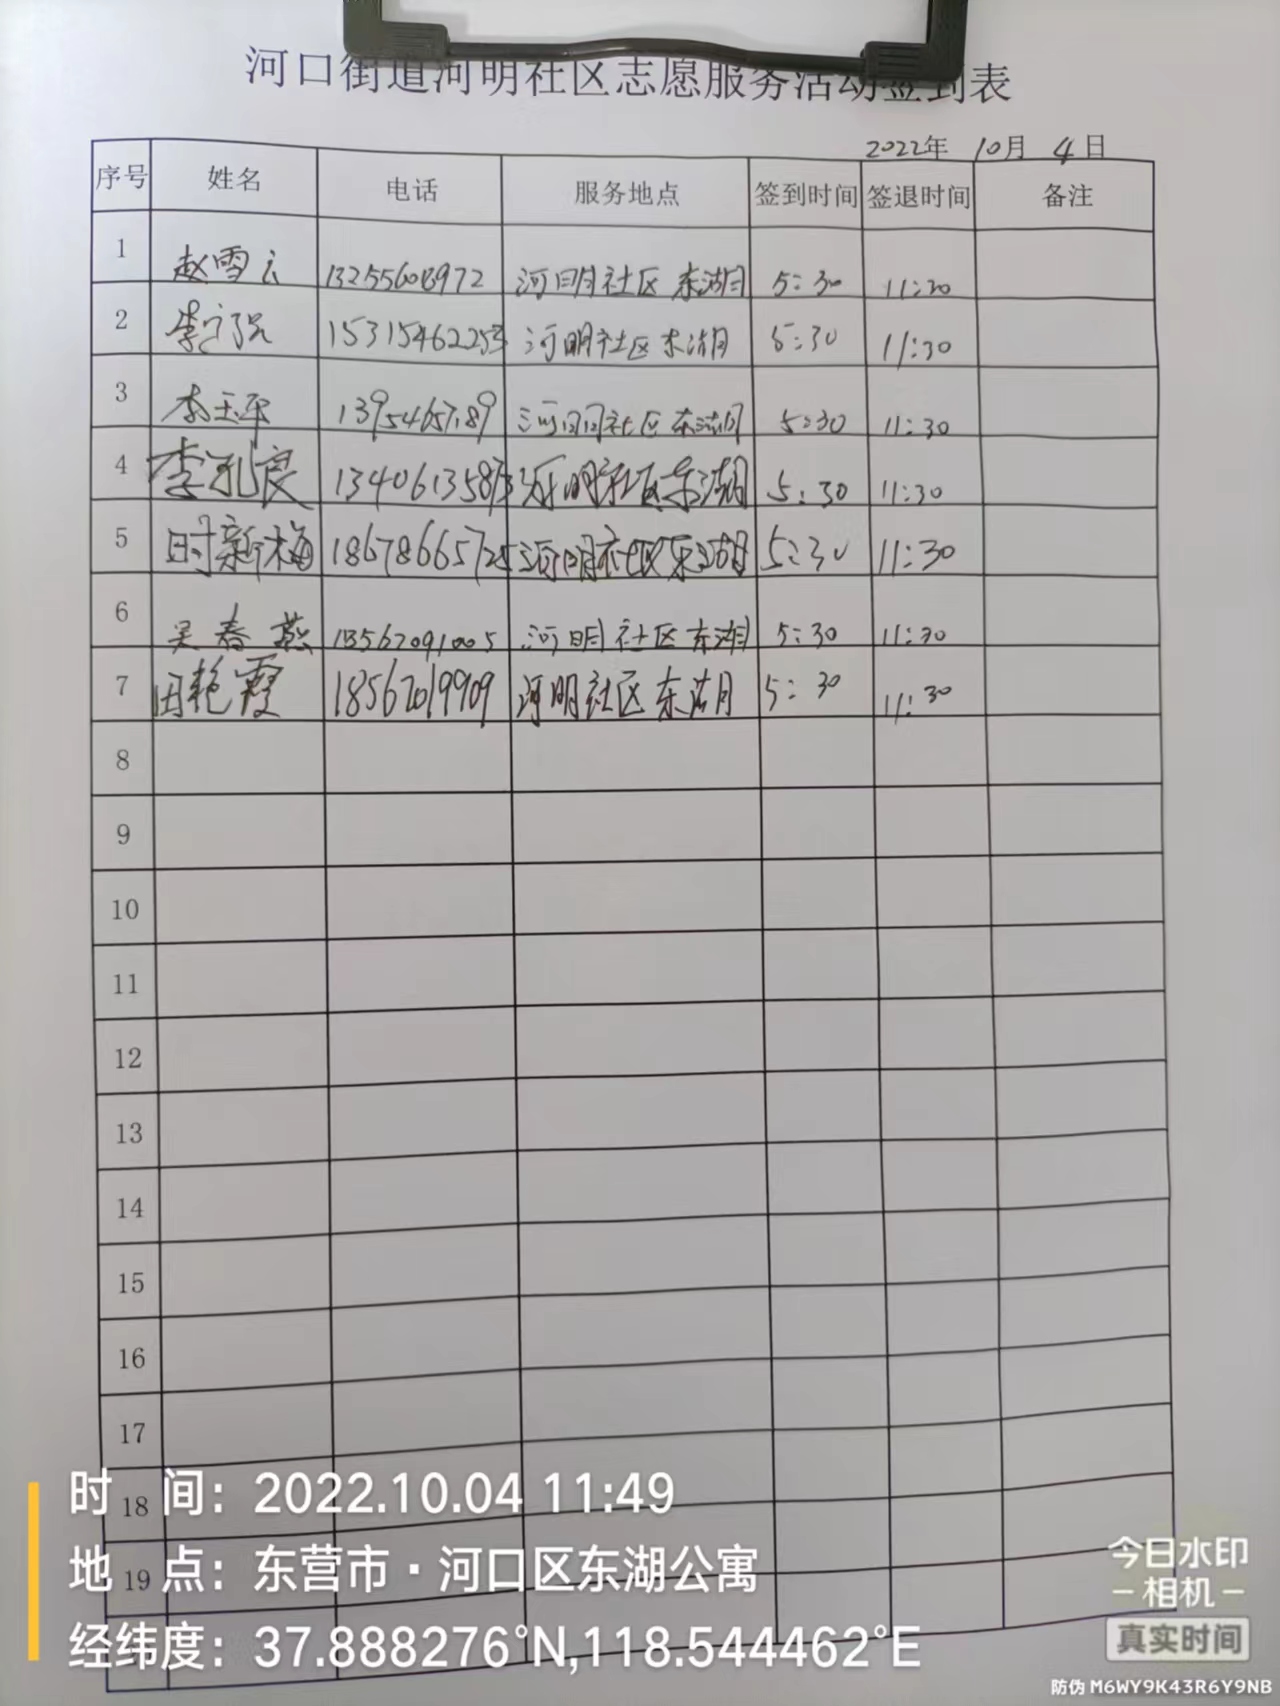 河口街道河明社区志愿服务活动签到表
2022年 10月 4日
序号 姓名 电话 服务地点 签到时间 签退时间 备注
1 赵雪云 河明社区东湖 5:30 11:30
2 15315462253 河明社区东湖 5:30 11:30
3 李玉平 13954657189 河明社区东湖 5:30 11:30
4 李孔良 13406135873 河明社区东湖 5:30 11:30
5 时新梅 18678665725 河明社区东湖 5:30 11:30
6 吴春燕 13562091005 河明社区东湖 5:30 11:30
7 田艳霞 18562019909 河明社区东湖 5:30 11:30
8
9
10
11
12
13
14
15
16
17
18
19
时间：2022.10.04 11:49
地点：东营市·河口区东湖公寓
经纬度：37.888276°N,118.544462°E
今日水印
-相机-
真实时间
防伪 M6WY9K43R6Y9NB